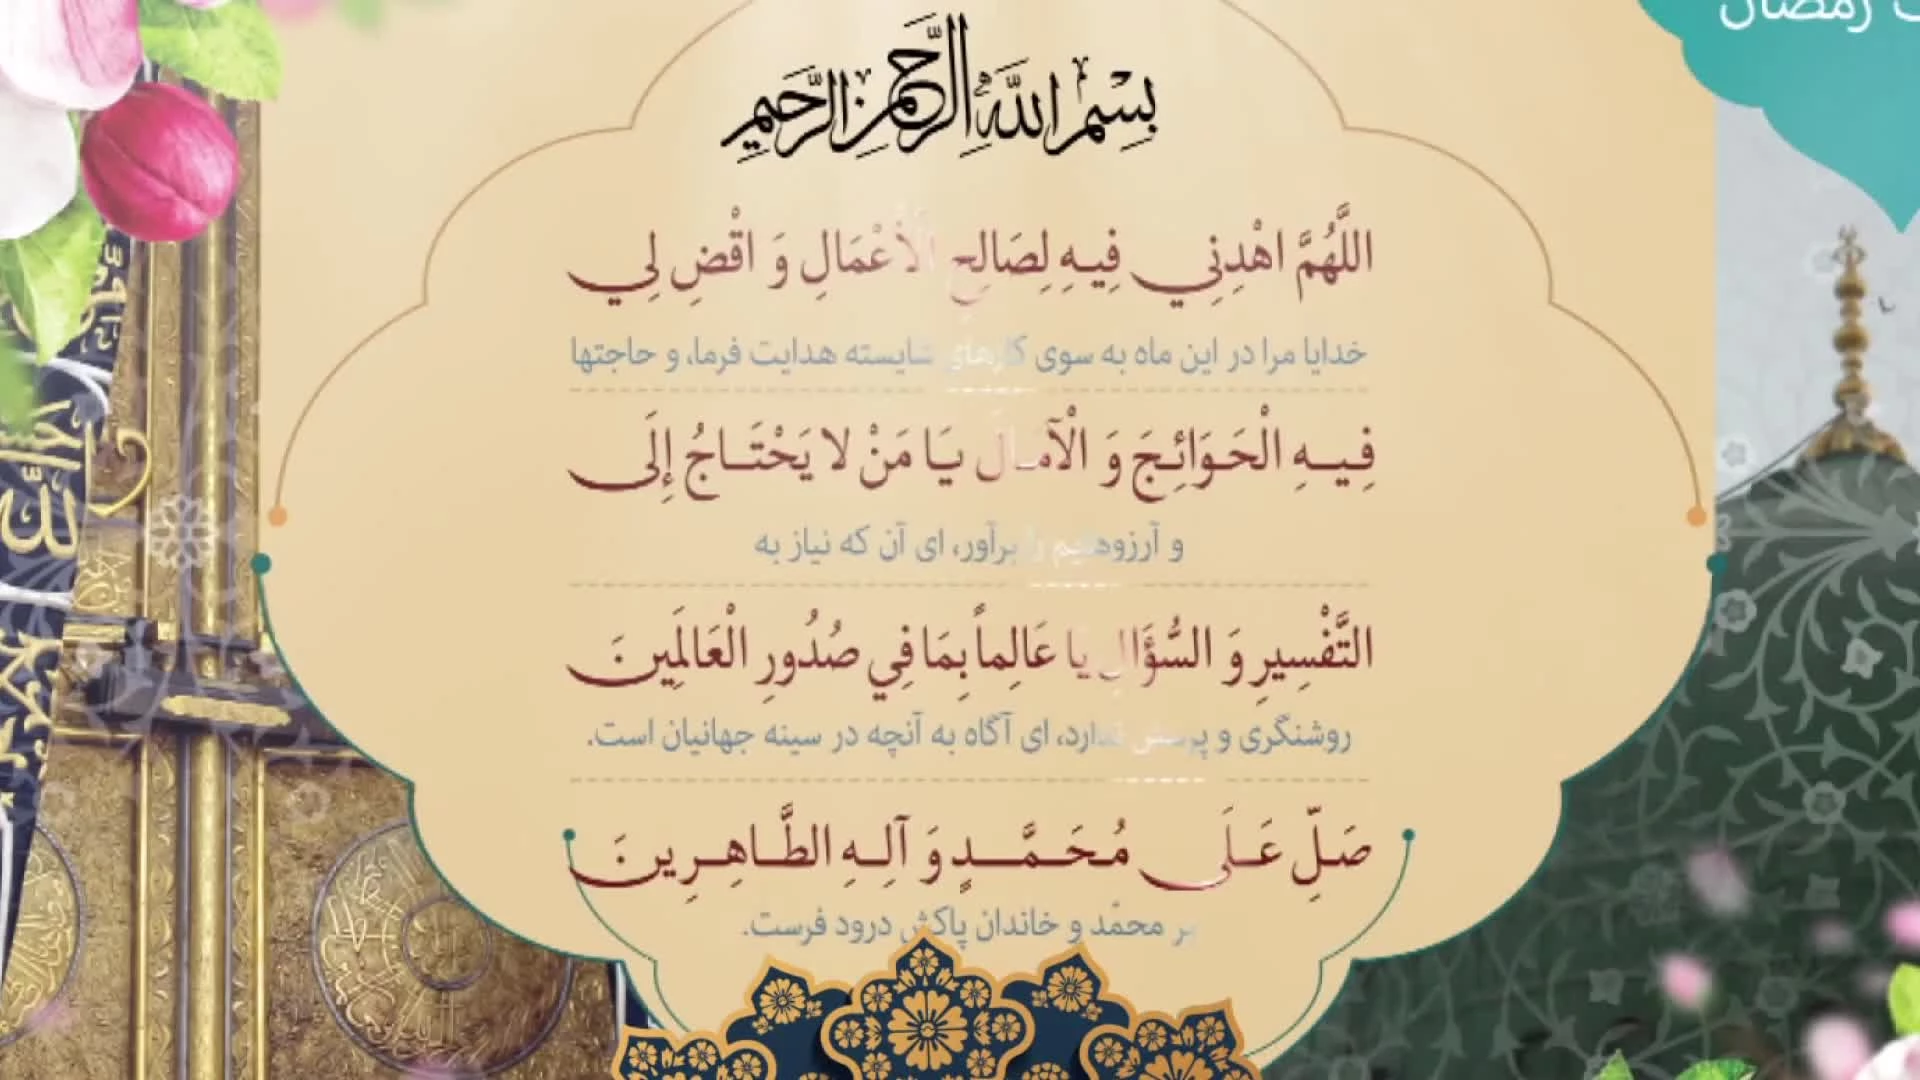 رمضان
بِسْمِ اللَّهِ الرَّحْمَنِ الرَّحِيمِ
اللَّهُمَّ اهْدِنِي فِيهِ لِصَالِحِ الْأَعْمَالِ وَ اقْضِ لِي
خدایا مرا در این ماه به سوی کارهای شایسته هدایت فرما، و حاجتها
فِيهِ الْحَوَائِجَ وَ الْآمَالَ يَا مَنْ لا يَحْتَاجُ إِلَى
و آرزوهایم را برآور، ای آن که نیاز به
التَّفْسِيرِ وَ السُّؤَالِ يَا عَالِماً بِمَا فِي صُدُورِ الْعَالَمِينَ
روشنگری و پرسش ندارد، ای آگاه به آنچه در سینه جهانیان است.
صَلِّ عَلَى مُحَمَّدٍ وَ آلِهِ الطَّاهِرِينَ
بر محمّد و خاندان پاکش درود فرست.